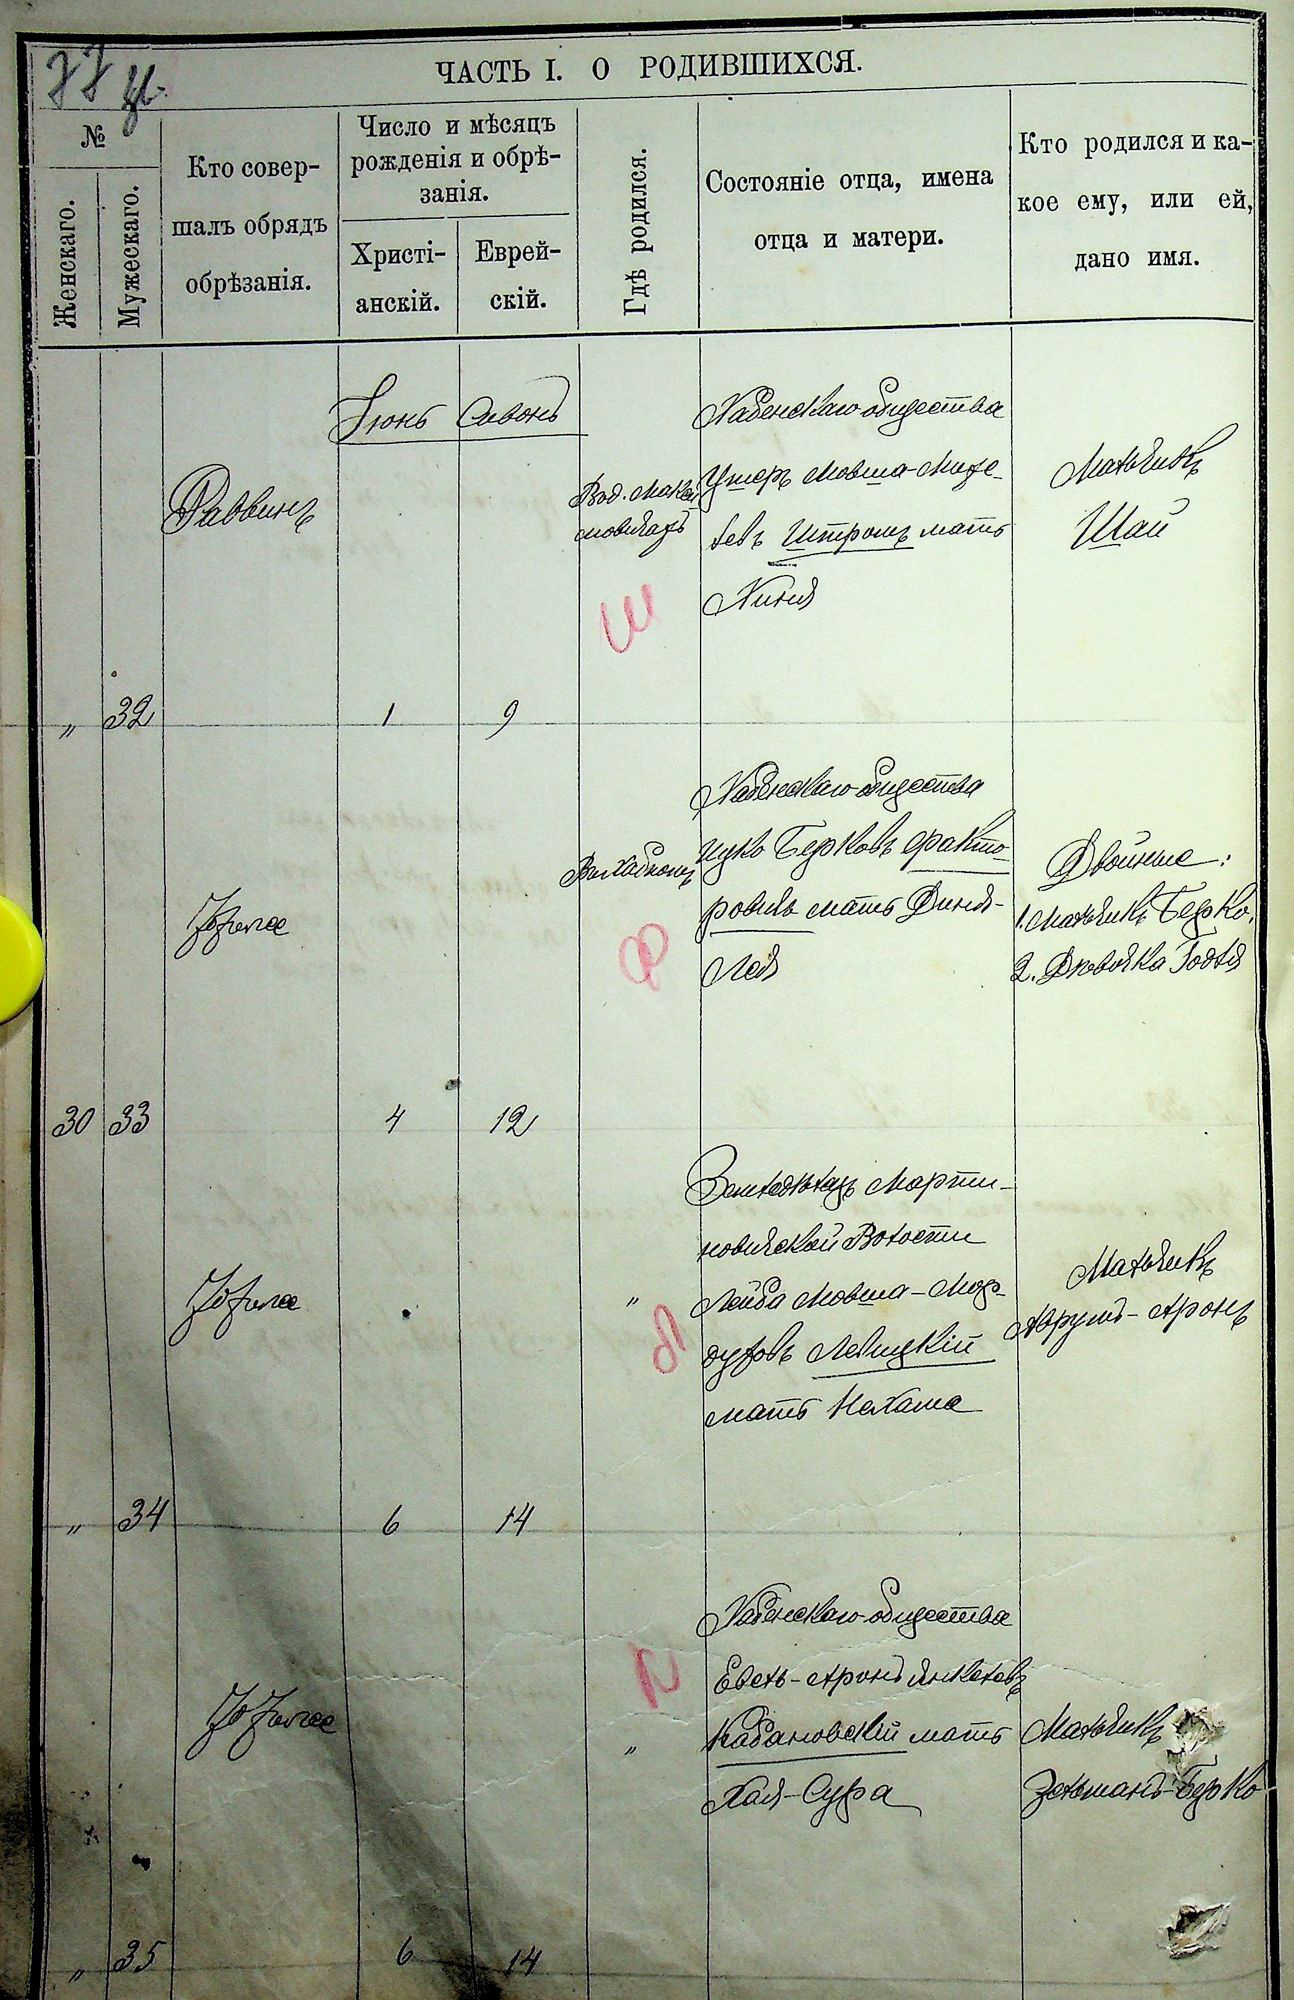 ЧАСТЬ I. О РОДИВШИХСЯ.
№
Женскаго.
Мужескаго.
Кто совер-
шалъ обрядъ
обрѣзанія.
Число и мѣсяцъ
рожденія и обрѣ-
занія.
Христі-
анскій.
Еврей-
скій.
Гдѣ родился.
Состояніе отца, имена
отца и матери.
Кто родился и ка-
кое ему, или ей,
дано имя.
Іюнь Сивонъ
" 32
Раввинъ
1 9
Ш
Хабенскаго общества
Ушеръ Мовша-
Штромъ мать
Хиня
Мальчикъ
Шай
30 33
4 12
Въ Хабномъ
Ф
Хабенскаго общества
Ицко Берковъ Факто-
ровичъ мать Диня-
Лея
Двойные:
1. Мальчикъ Берко,
2. Дѣвочка Голдя
" 34
6 14
"
Л
Земледѣлецъ Марти-
новичской Волости
Лейба Мовша-Мор-
духовъ Левицкій
мать Нехама
Мальчикъ
Аврумъ-Аронъ
" 35
6 14
"
К
Хабенскаго общества
Евель-Аронъ Янкелевъ
Кабановскій мать
Хая-Сура
Мальчикъ
Зельманъ-Берко